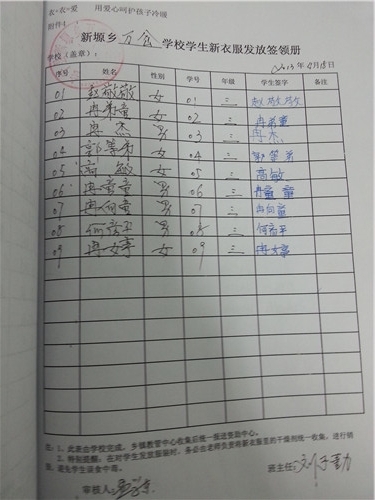 衣+衣>爱 用爱心呵护孩子冷暖
附件4：
新塬乡万仓学校学生新衣服发放签领册
学校（盖章）： 2013年4月18日
序号 姓名 性别 学号 年级 学生签字 备注
01 赵敬敬 女 01 三 赵敬敬
02 冉 童 女 02 三 冉 童
03 冉杰 男 03 三 冉杰
04 郭等弟 女 04 三 郭等弟
05 高敏 女 05 三 高敏
06 冉童童 男 06 三 冉童童
07 冉向童 男 07 三 冉向童
08 何高平 男 08 三 何高平
09 冉女亭 女 09 三 冉女亭
注：1、此表由学校完成，乡镇教管中心收集后统一报送资助中心。
2、特别提醒：在对学生发放服装时，务必由老师负责将新衣服里的干燥剂统一收集，进行销
毁，避免学生误食中毒。
审核人： 班主任：刘